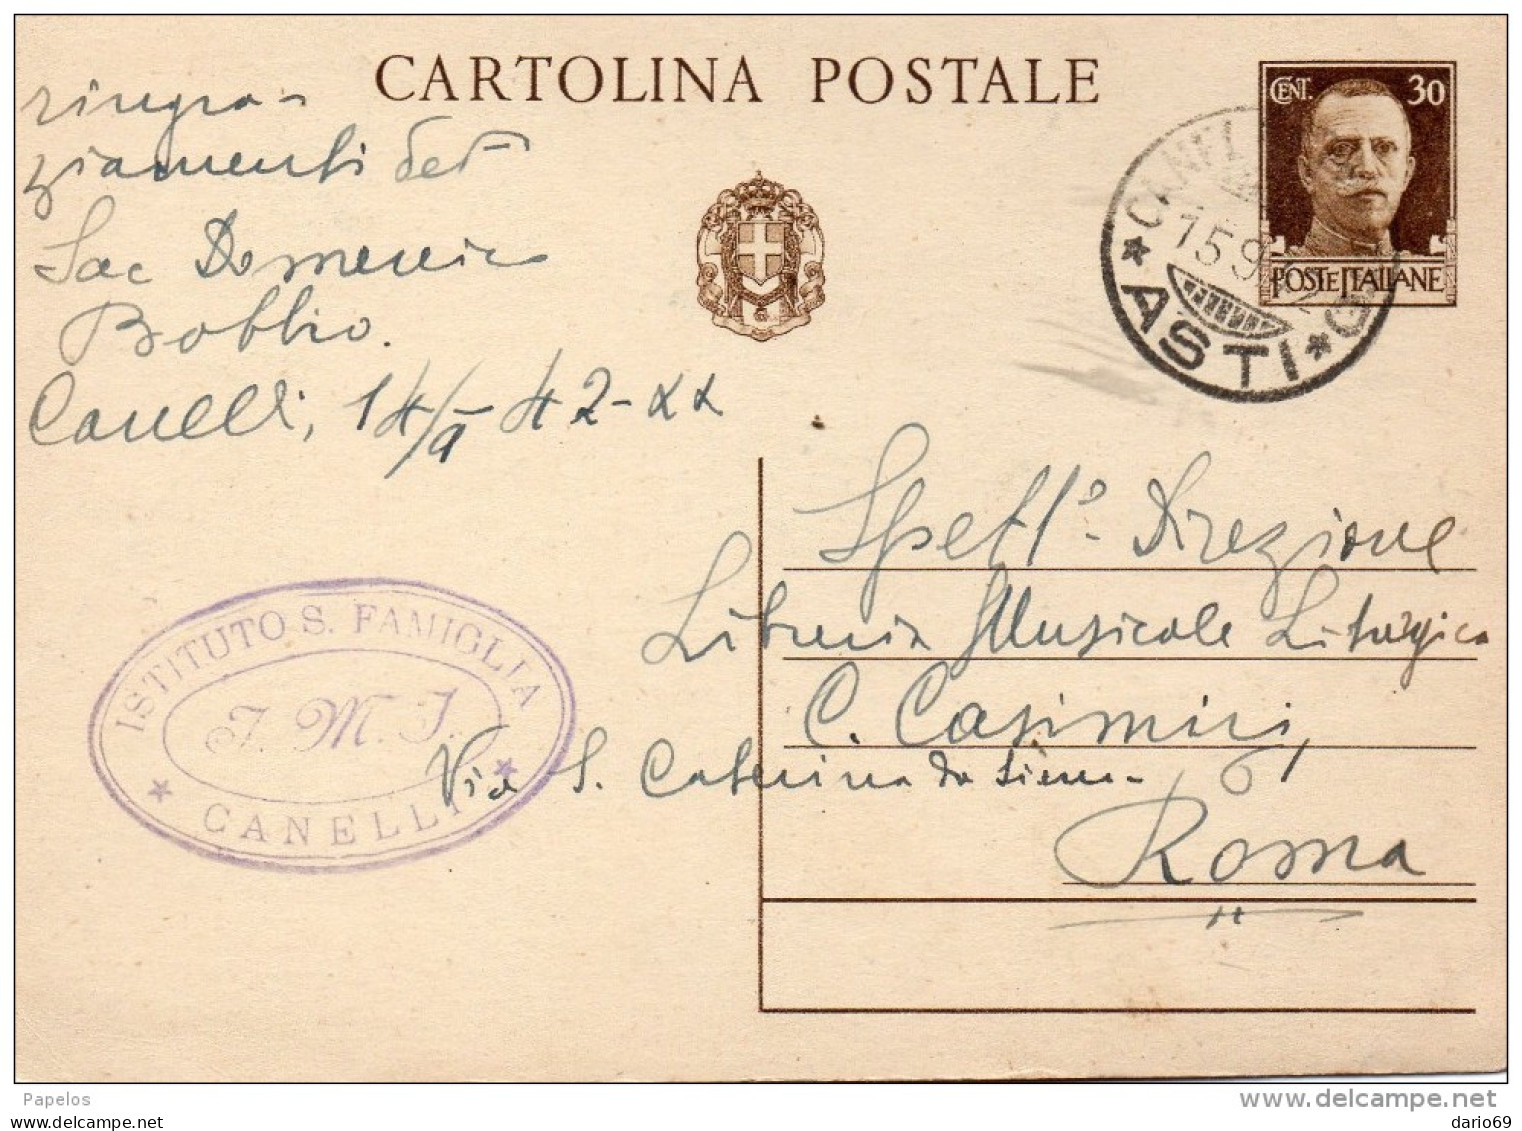 CARTOLINA POSTALE
CENT. 30
POSTE ITALIANE
ringra-
ziamenti del
Sac Domenico
Bobbio.
Canelli, 14/9-42-XX
CANELLI
15 9
* ASTI *
Spett. Direzione
Libreria Musicale Liturgica
C. Casimiri,
Via S. Caterina da Siena- 61
Roma
ISTITUTO S. FAMIGLIA
J. M. J.
* CANELLI *
Papelos
www.delcampe.net
dario69